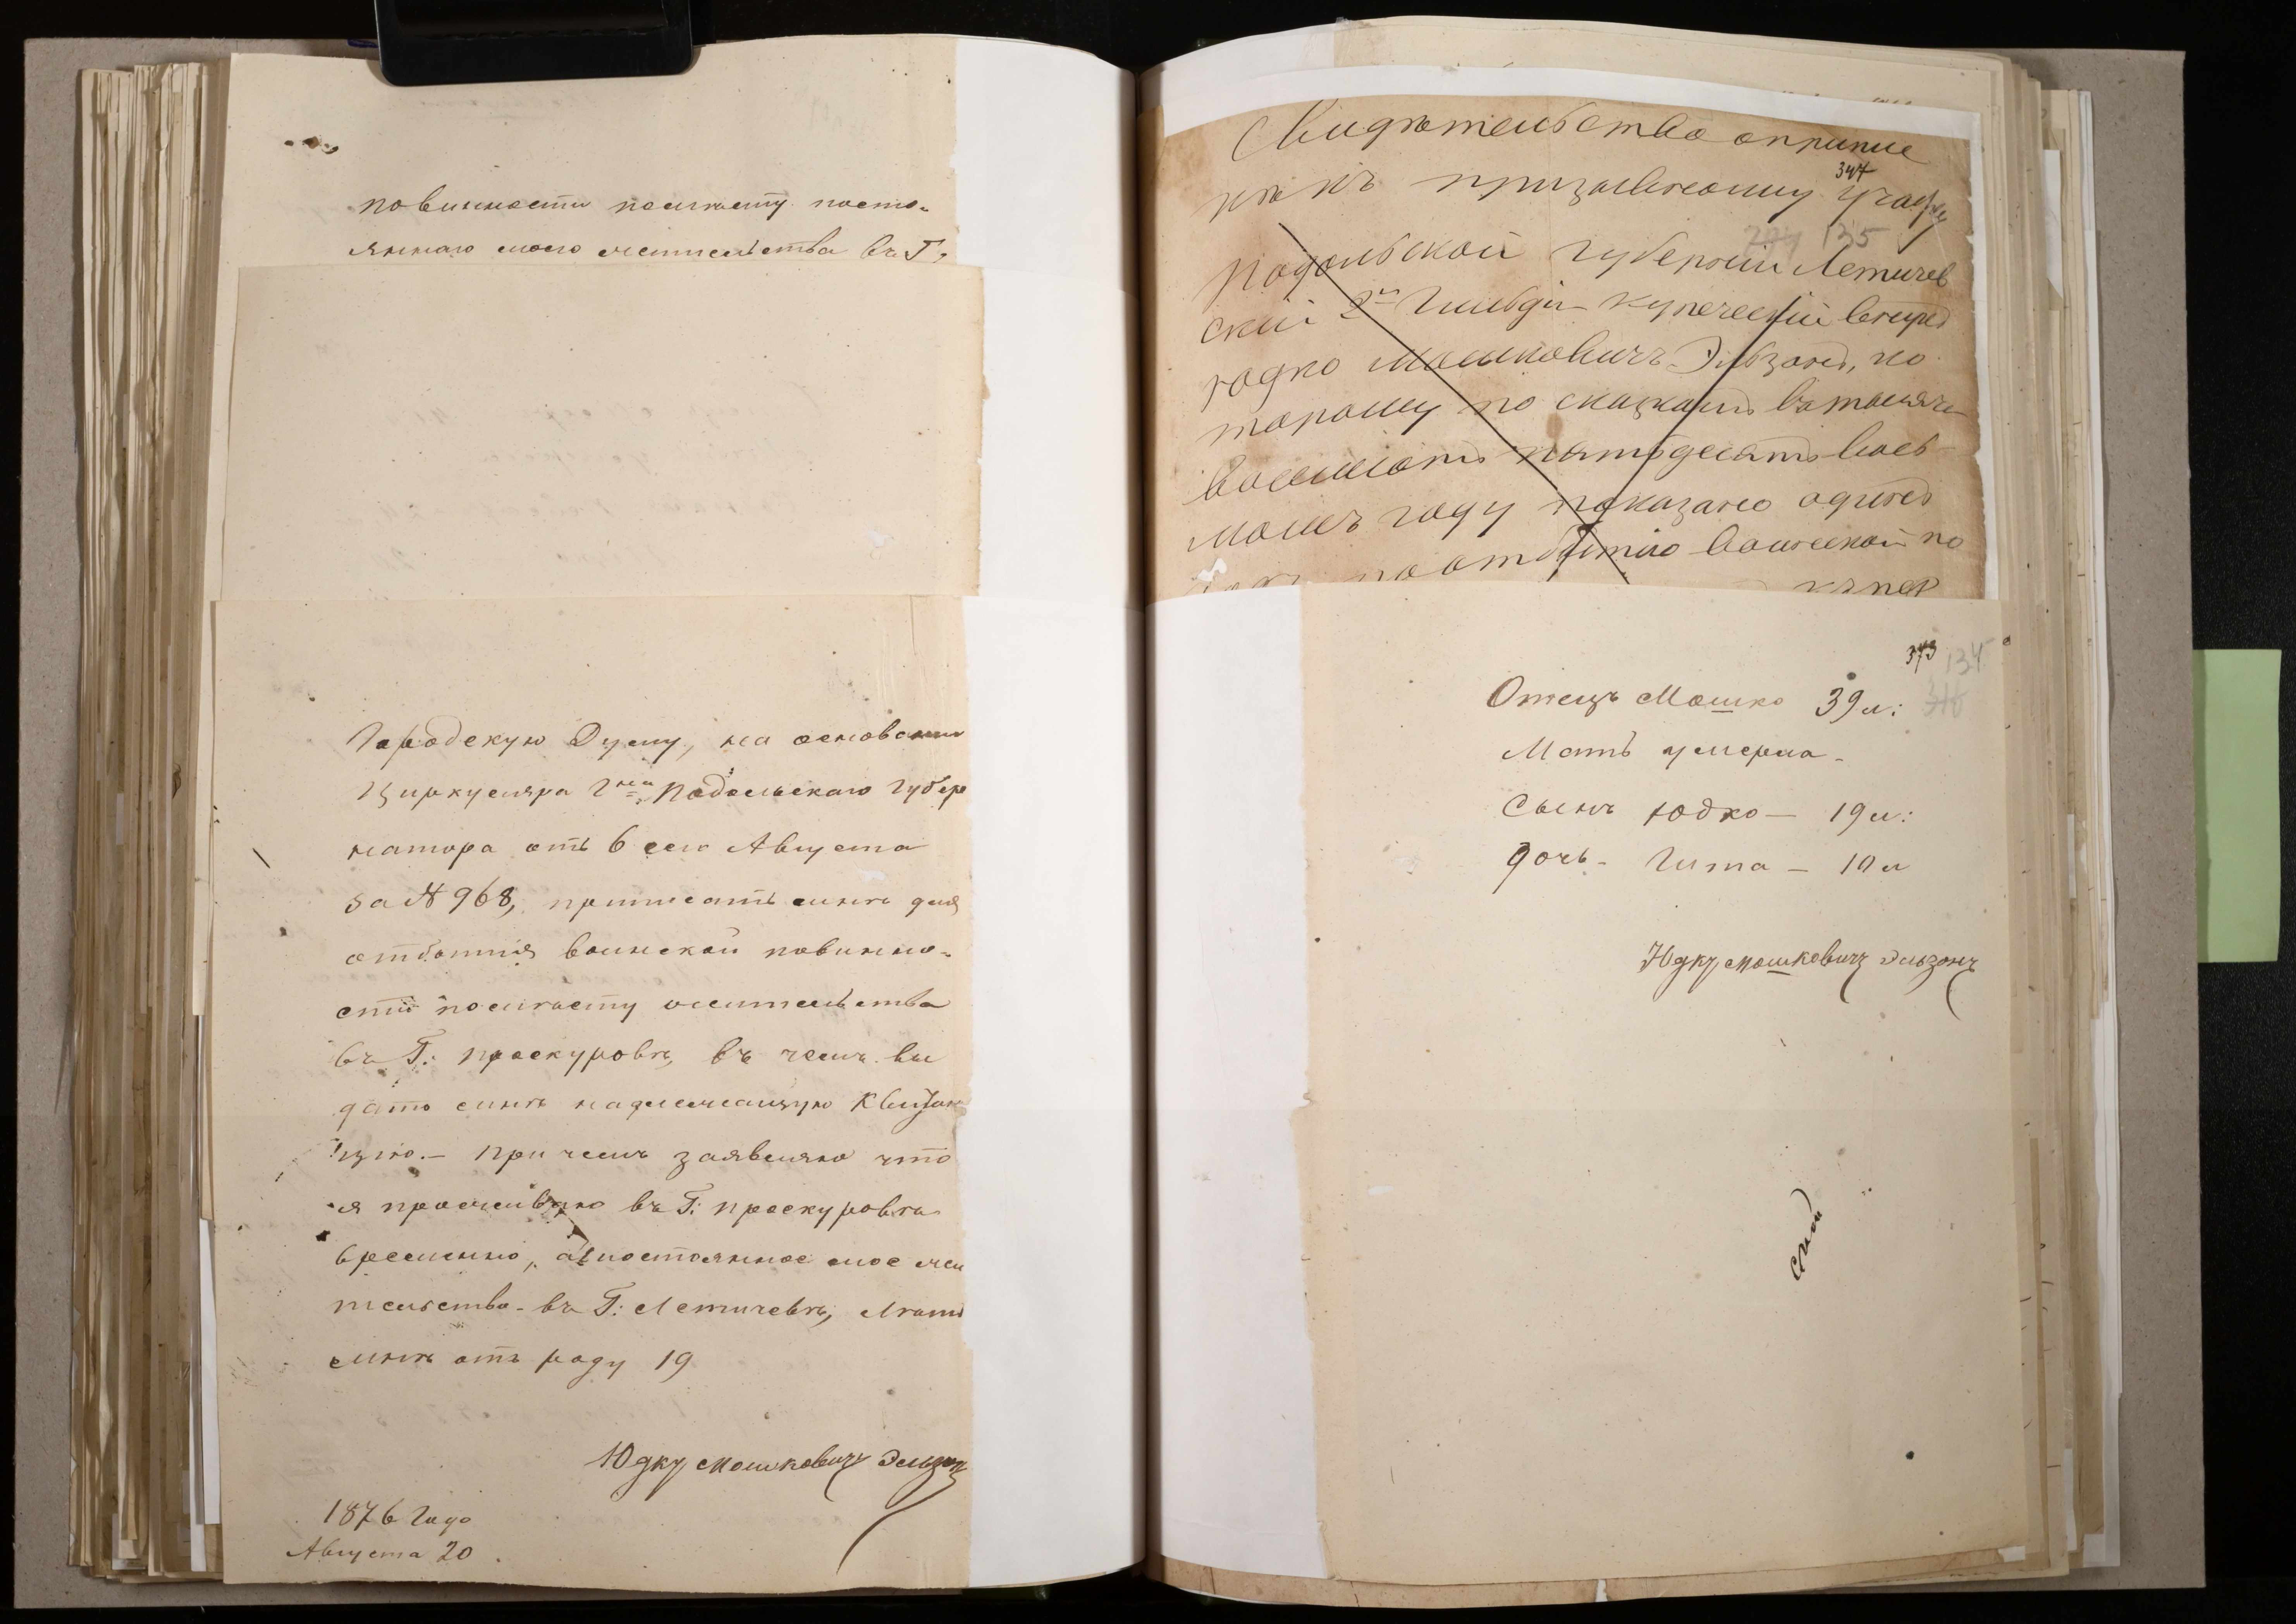 повинности по мѣсту посто-
яннаго моего жительства въ Г.
Городскую Думу, на основании
Циркуляра Г на Подольскаго Губер
натора отъ 6 сего Августа
за № 968, приписать мнѣ для
отбытія воинской повинно-
сти по мѣсту жительства
въ Г: Проскуровѣ, въ чемъ вы
дать мнѣ надлежащую Квитан
цію.- При чемъ заявляю что
я проживаю въ Г: Проскуровѣ
временно, а постоянное мое жи
тельство - въ Г: Летичевѣ, Лѣтъ
мнѣ отъ роду 19
Юдку Мошковичъ Эльзонъ
1876 Года
Августа 20
Свидѣтельство о припис
кѣ къ призывному участку
347
204 135
Подольской губерніи Летичев
скій 2й Гильдіи купеческій внукъ
Юдко Мошковичъ Эльзонъ, ко
торому по сказкамъ въ тысяча
восемсотъ пятдесятъ вось
момъ году показано одинъ
по отбытію воинской по
къ пер
373 134
376
Отецъ Мошко 39 л:
Мать умерла -
Сынъ Юдко - 19 л:
Дочь - Гита - 10 л
Юдку Мошковичъ Эльзонъ